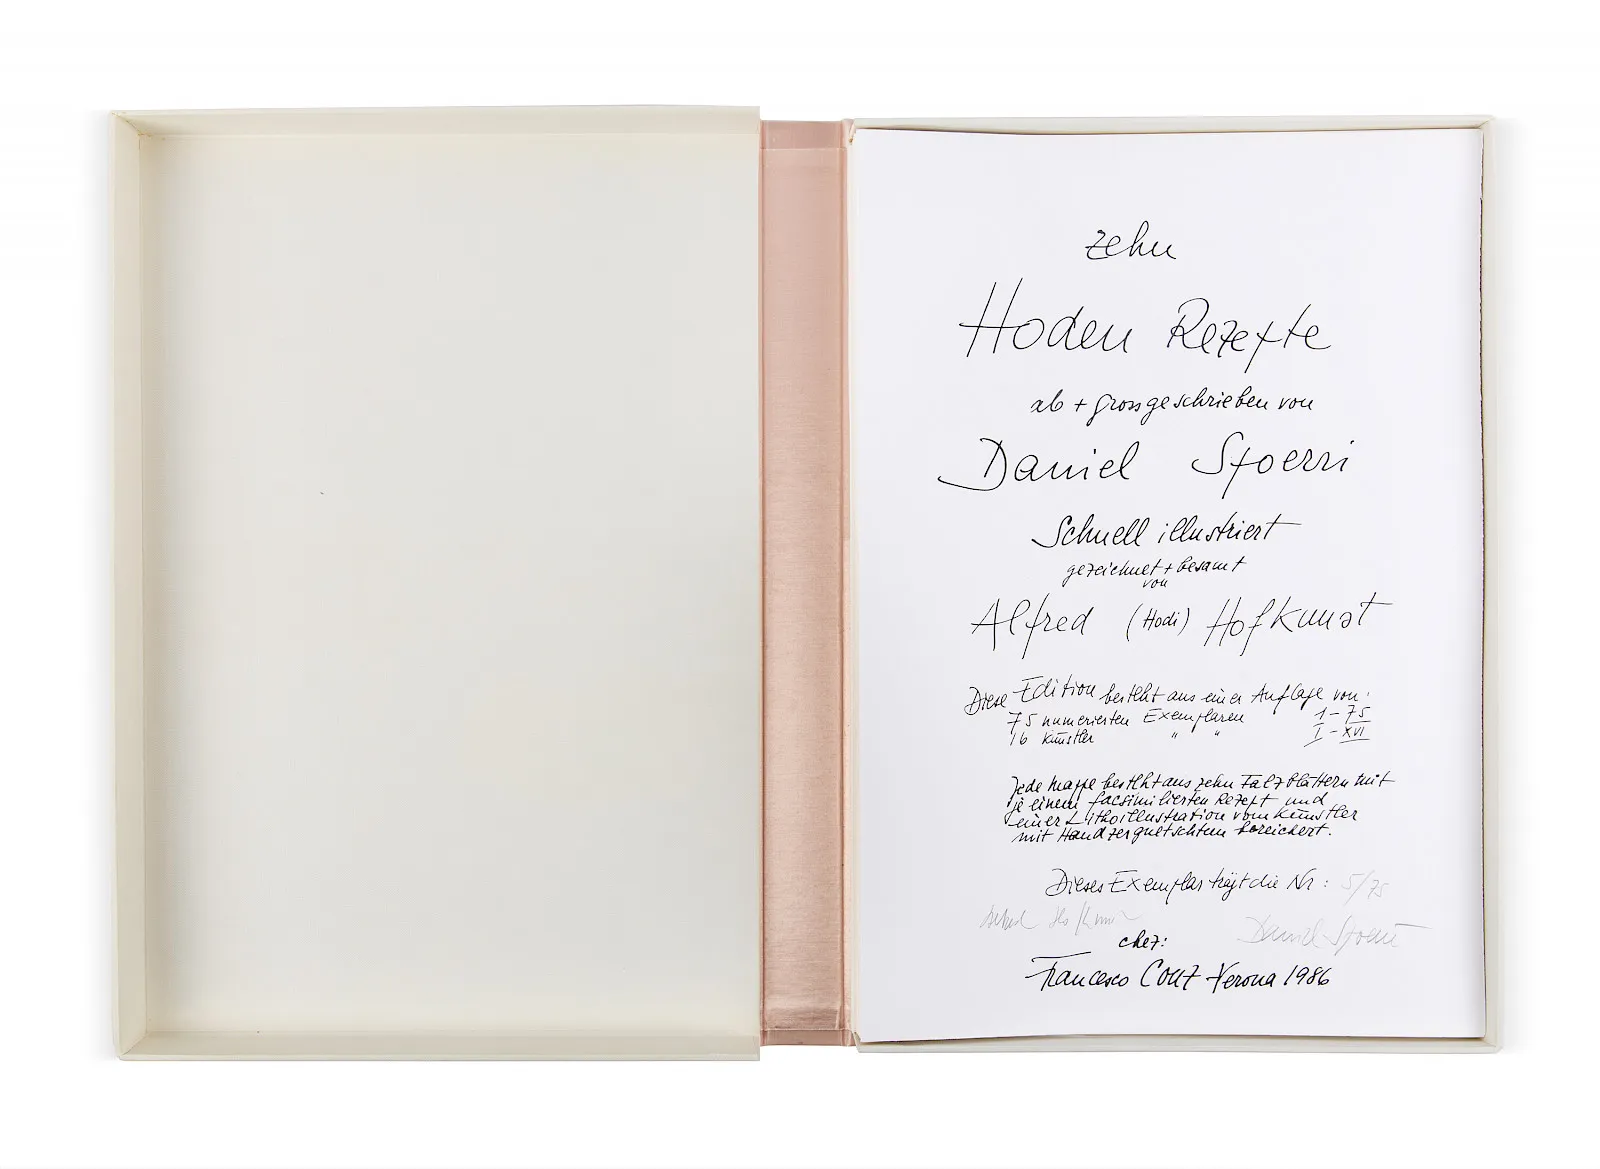 zehn
Hoden Rezepte
ab + grossgeschrieben von
Daniel Spoerri
Schnell illustriert
gezeichnet + besamt
von
Alfred (Hodi) Hofkunst
Diese Edition besteht aus einer Auflage von:
75 numerierten Exemplaren 1-75
16 Künstler " " I-XVI
jede Mappe besteht aus zehn Falzblättern mit
je einem facsimilierten Rezept und
einer Lithoillustration vom Künstler
mit Handzerquetschtem bereichert.
Dieses Exemplar trägt die Nr: 5/75
Alfred Hofkunst Daniel Spoerri
chez:
Francesco Conz Verona 1986